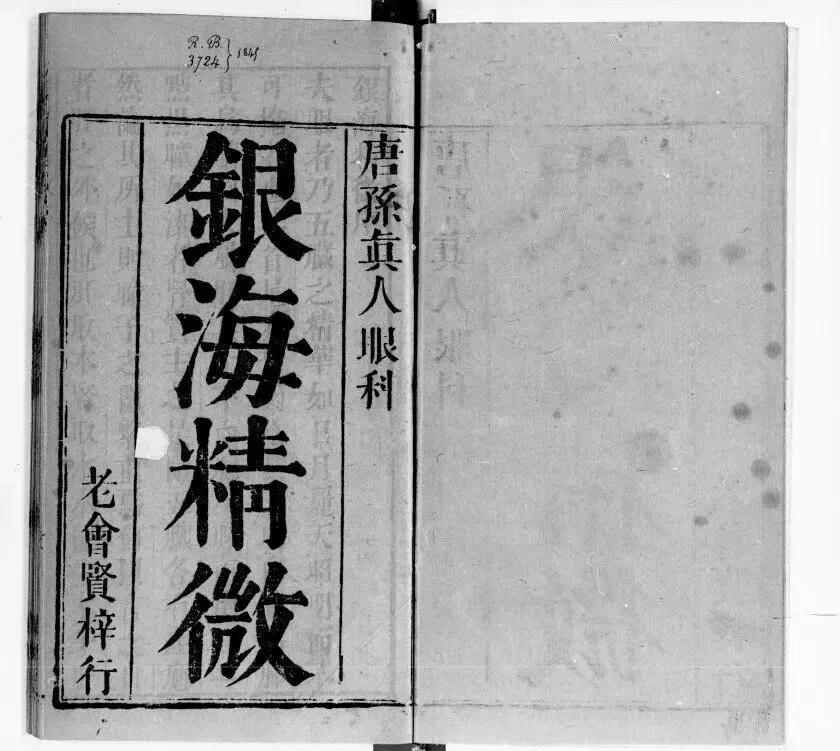 R.B. 3724 } 1845
唐孫眞人眼科
銀海精微
老會賢梓行